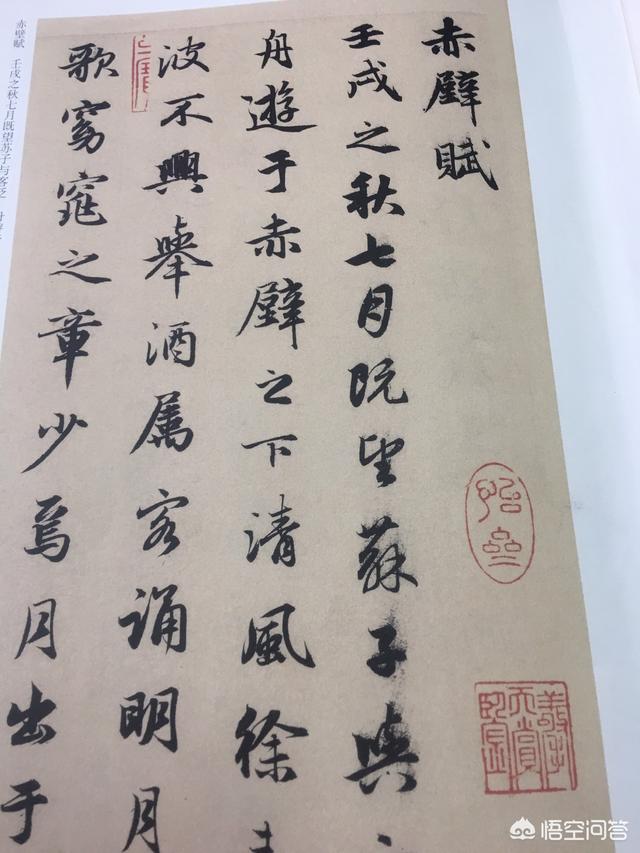 赤壁賦
壬戌之秋七月既望蘇子與
舟遊于赤壁之下清風徐
波不興舉酒属客誦明月
歌窈窕之章少焉月出于
赤壁赋 壬戌之秋七月既望苏子与客泛
悟空问答